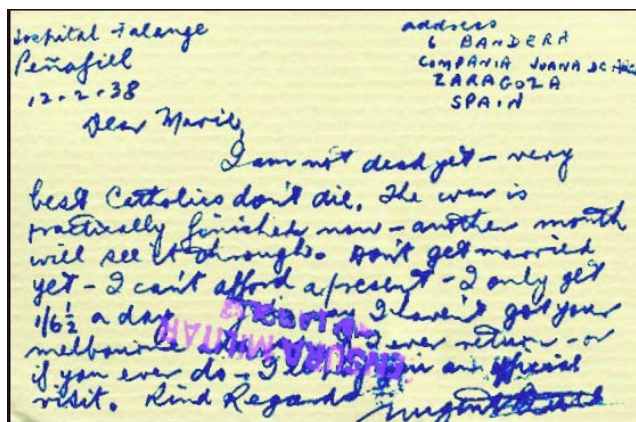 Hospital Falange
Peñafiel
12.2.38
address
6 BANDERA
COMPANIA JUANA DE ARCO
ZARAGOZA
SPAIN
Dear Marie,
I am not dead yet - very
best Catholics don't die. The war is
practically finished now - another month
will see it through. Don't get married
yet - I can't afford a present - I only get
1/6½ a day. I haven't got your
melbourne ever return - or
if you ever do - I an official
visit. Kind Regards
CENSURA MILITAR